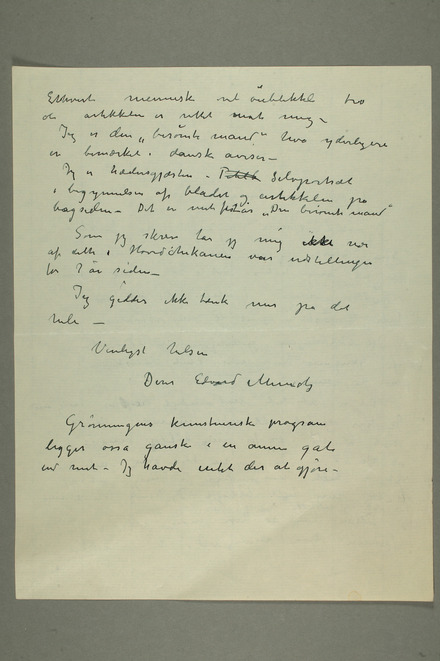 Ethvert menneske vil øieblikkel tro
at artikkelen er rettet mod mig –
Jeg er den „berömte mand" hvis yderligere
er bemærket i danske aviser –
Jeg er hædersgjæsten – Selvportræt
i begyndelsen af bladet og artikkelen på
bagsiden – Det er mit „Den berömte mand"
Som jeg skrev tar jeg mig ikke nær
af dette i var udstillingen
for 2 år siden –
Jeg gidder ikke tænk mer på det
hele –
Venligst hilsen
Deres Edvard Munch
Grönningens kunstneriske program
ligger osså ganske i en annen gate
end mit – Jeg havde intet der at gjöre –